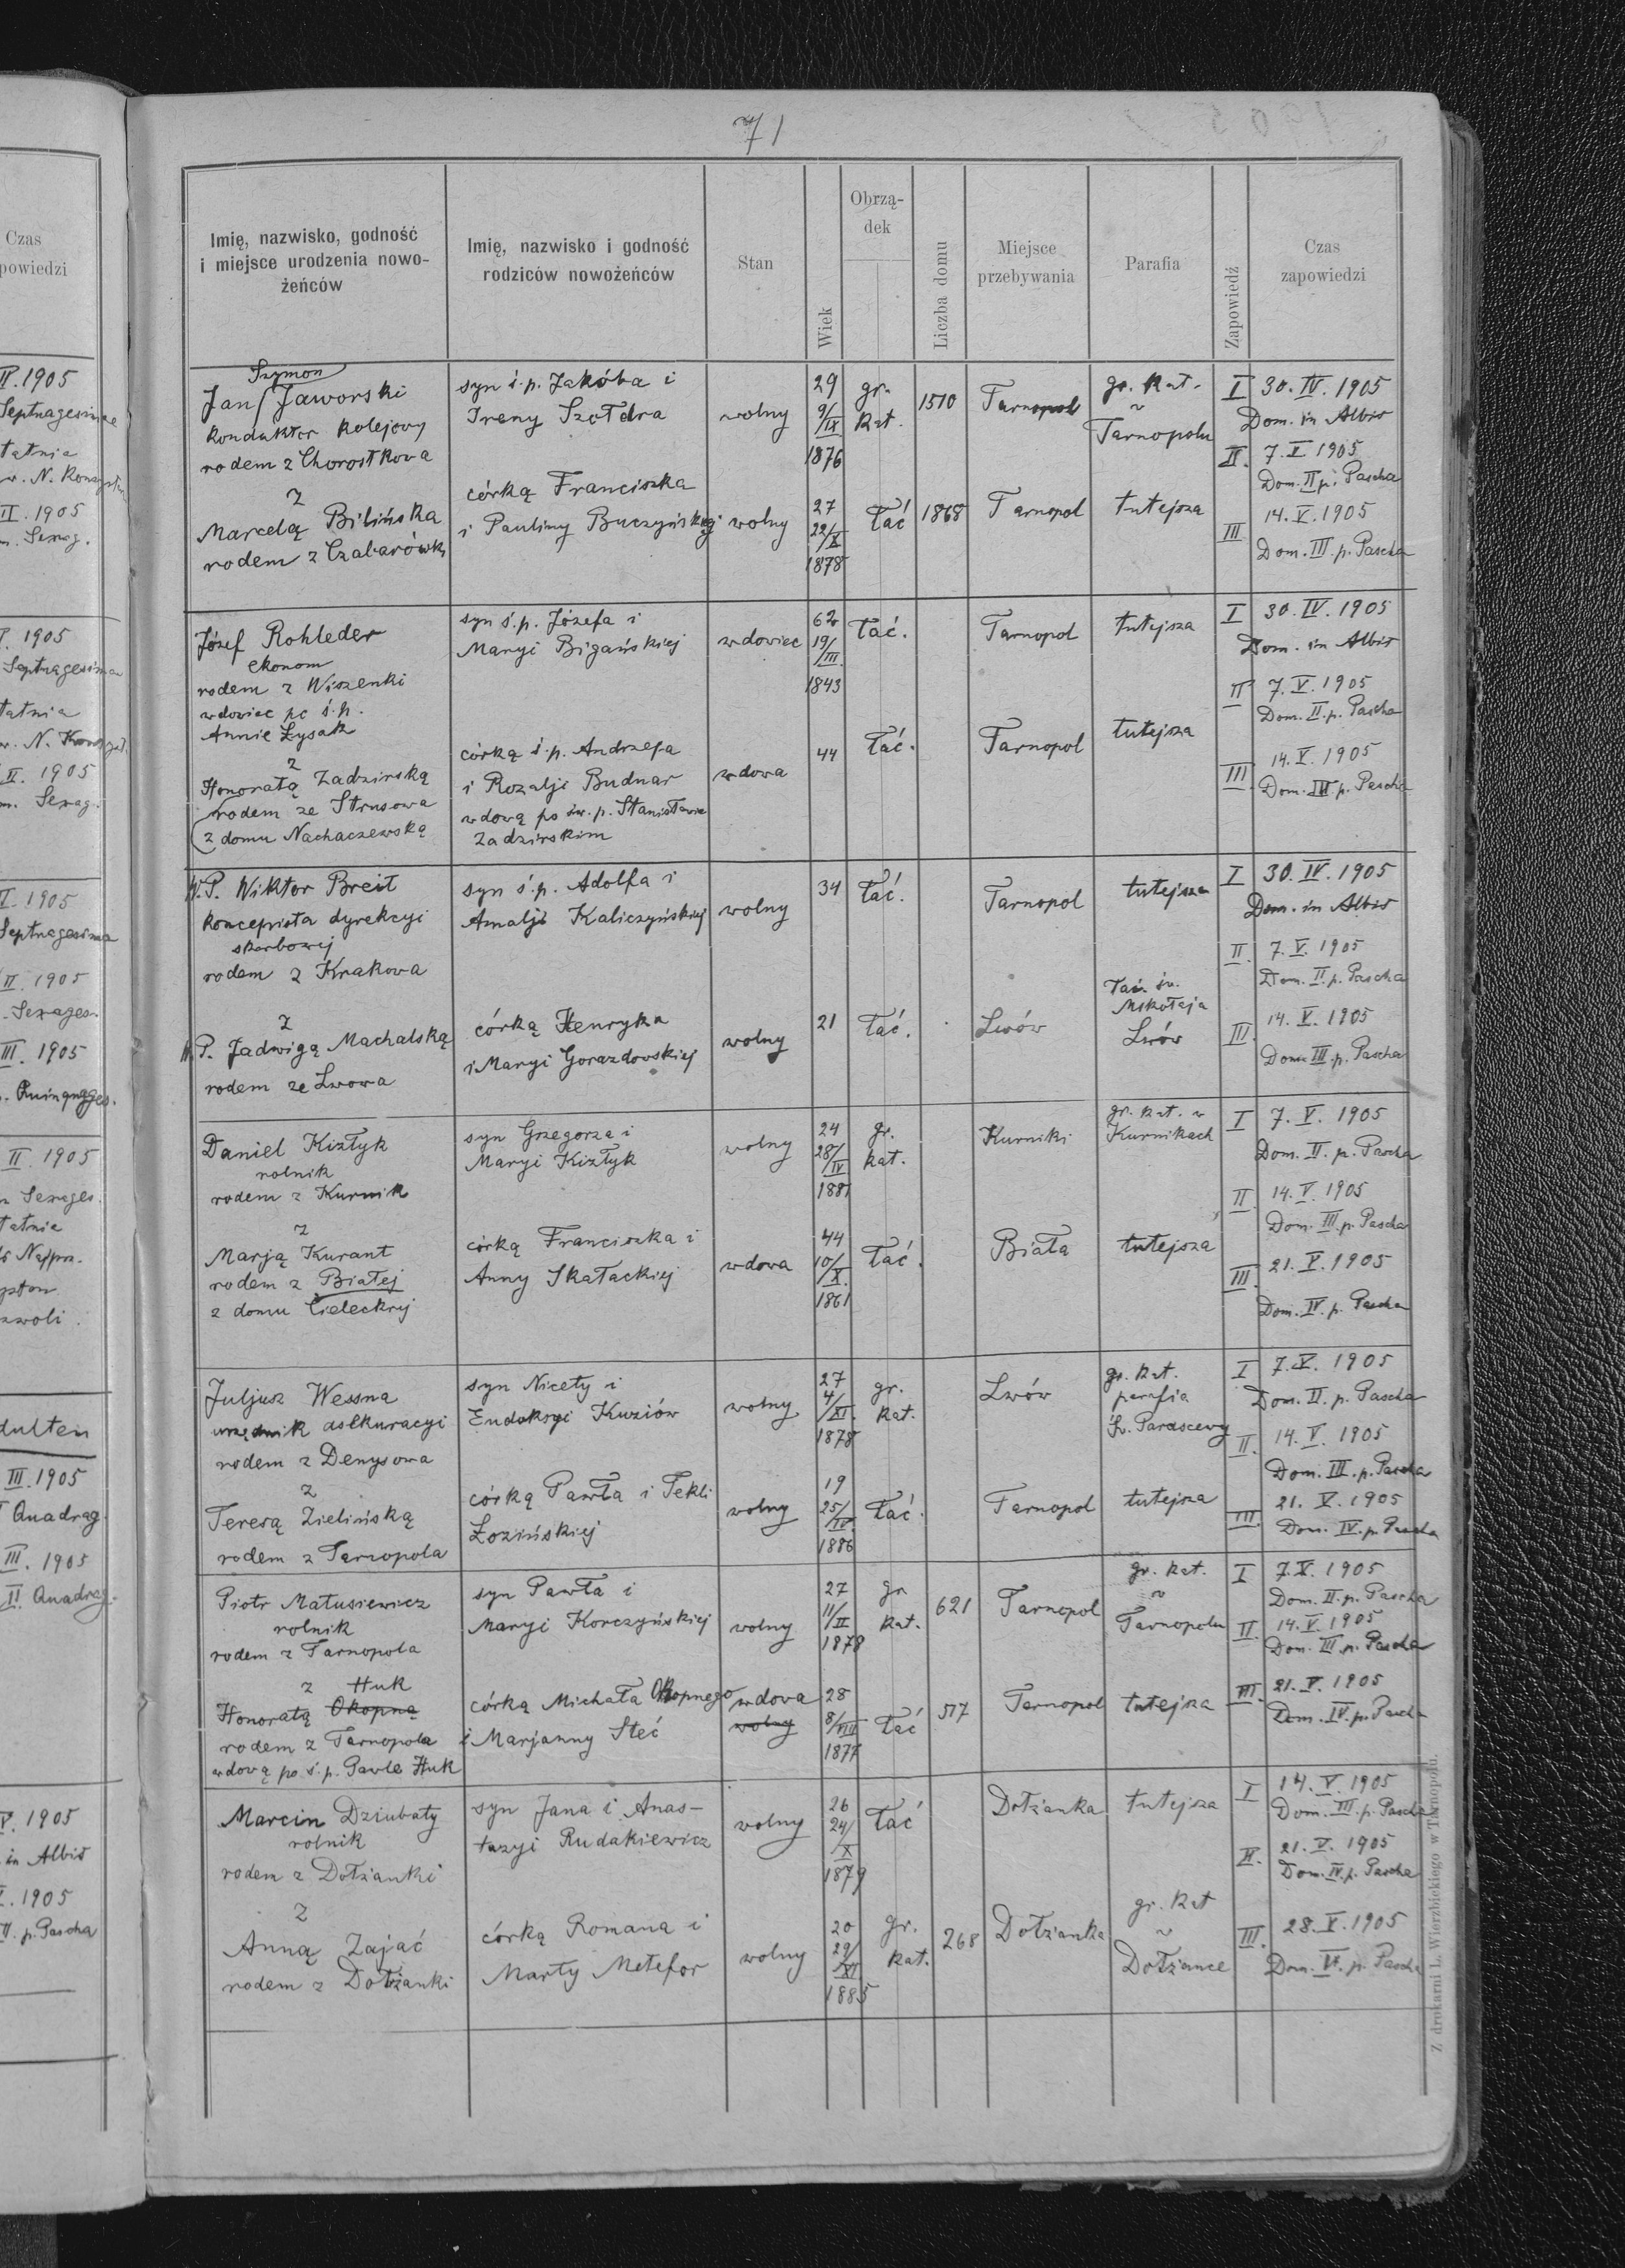 71
Imię, nazwisko, godność
i miejsce urodzenia nowo-
żeńców
Imię, nazwisko i godność
rodziców nowożeńców
Stan
Wiek
Obrzą-
dek
Liczba domu
Miejsce
przebywania
Parafia
Zapowiedź
Czas
zapowiedzi
Szymon
Jan Jaworski
konduktor kolejowy
rodem z Chorostkowa
z
Marcelą Bilińska
rodem z Czabarówki
syn ś.p. Jakóba i
Ireny Szołdra
córką Franciszka
i Pauliny Buczyńskiej
wolny
wolny
29
9/IX
1876
27
22/X
1878
gr.
kat.
łać
1510
1868
Tarnopol
Tarnopol
gr. kat.
w
Tarnopolu
tutejsza
I 30. IV. 1905
Dom. in Albis
II. 7. V 1905
Dom. II p. Pascha
III 14. V. 1905
Dom. III. p. Pascha
Józef Rohleder
ekonom
rodem z Wiszenki
wdowiec po ś.p.
Annie Łysak
z
Honoratą Zadzirską
rodem ze Strusowa
z domu Nachaczewską
syn ś.p. Józefa i
Maryi Bigańskiej
córką ś.p. Andrzeja
i Rozalji Budnar
wdową po św. p. Stanisławie
Zadzirskim
wdowiec
wdowa
62
19/III.
1843
44
łać.
łać.
Tarnopol
Tarnopol
tutejsza
tutejsza
I 30. IV. 1905
Dom. in Albis
II 7. V. 1905
Dom. II. p. Pascha
III. 14. V. 1905
Dom. III p. Pascha
W.P. Wiktor Breit
koncepista dyrekcyi
skarbowej
rodem z Krakowa
z
W.P. Jadwigą Machalską
rodem ze Lwowa
syn ś.p. Adolfa i
Amalji Kaliczyńskiej
córką Henryka
i Maryi Gorazdowskiej
wolny
wolny
34
21
łać.
łać.
Tarnopol
Lwów
tutejsza
łać. św.
Mikołaja
Lwów
I 30. IV. 1905
Dom. in Albis
II. 7. V. 1905
Dom. II. p. Pascha
III. 14. V. 1905
Dom. III. p. Pascha
Daniel Kizłyk
rolnik
rodem z Kurnik
z
Marją Kurant
rodem z Białej
z domu Cieleckiej
syn Grzegorza i
Maryi Kizłyk
córką Franciszka i
Anny Skałackiej
wolny
wdowa
24
28/IV
1881
44
10/X.
1861
gr.
kat.
łać.
Kurniki
Biała
gr. kat. w
Kurnikach
tutejsza
I 7. V. 1905
Dom. II. p. Pascha
II. 14. V. 1905
Dom. III. p. Pascha
III. 21. V. 1905
Dom. IV. p. Pascha
Juljusz Wessna
urzędnik asekuracyi
rodem z Denysowa
z
Teresą Zielińską
rodem z Tarnopola
syn Nicety i
Eudoksyi Kuziów
córką Pawła i Tekli
Łozińskiej
wolny
wolny
27
4/XI.
1878
19
25/IV.
1886
gr.
kat.
łać.
Lwów
Tarnopol
gr. kat.
parafia
Św. Parascevy
tutejsza
I 7. V. 1905
Dom. II. p. Pascha
II. 14. V. 1905
Dom. III. p. Pascha
III. 21. V. 1905
Dom. IV. p. Pascha
Piotr Matusiewicz
rolnik
rodem z Tarnopola
z Huk
Honoratą Okopną
rodem z Tarnopola
wdową po ś.p. Pawle Huk
syn Pawła i
Maryi Korczyńskiej
córką Michała Okopnego
i Marjanny Steć
wolny
wdowa
wolny
27
11/II
1878
28
8/VIII
1877
gr
kat.
łać
621
517
Tarnopol
Tarnopol
gr. kat.
w
Tarnopolu
tutejsza
I 7. V. 1905
Dom. II. p. Pascha
II. 14. V. 1905
Dom. III p. Pascha
III. 21. V. 1905
Dom. IV. p. Pascha
Marcin Dziubaty
rolnik
rodem z Dołżanki
z
Anną Zając
rodem z Dołżanki
syn Jana i Anas-
tazyi Rudakiewicz
córką Romana i
Marty Metefor
wolny
wolny
26
24/X
1879
20
29/XI
1885
łać
gr.
kat.
268
Dołżanka
Dołżanka
tutejsza
gr. kat
w
Dołżance
I 14. V. 1905
Dom. III. p. Pascha
II. 21. V. 1905
Dom. IV. p. Pascha
III. 28. V. 1905
Dom. V. p. Pascha
Z drukarni L. Wierzbickiego w Tarnopolu.